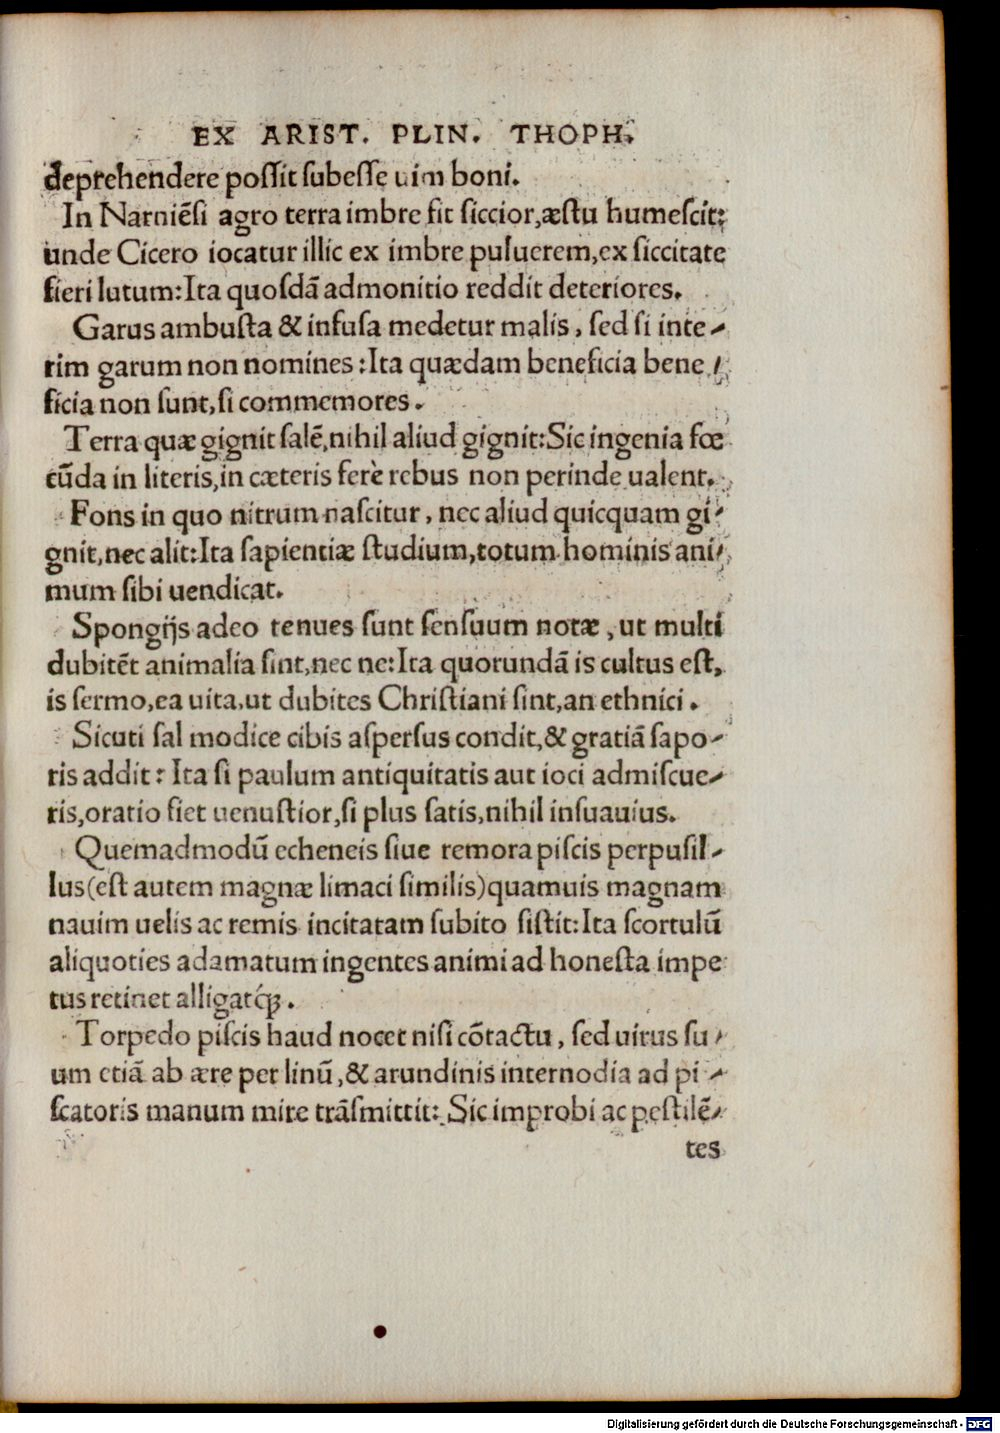 EX ARIST. PLIN. THOPH.
deprehendere poſſit ſubeſſe uim boni.
In Narniēſi agro terra imbre fit ſiccior,æſtu humeſcit:
unde Cicero iocatur illic ex imbre puluerem,ex ſiccitate
fieri lutum:Ita quoſdā admonitio reddit deteriores.
Garus ambuſta & infuſa medetur malis, ſed ſi inte-
rim garum non nomines:Ita quædam beneficia bene-
ficia non ſunt,ſi commemores.
Terra quæ gignit ſalē,nihil aliud gignit:Sic ingenia fœ
cūda in literis,in cæteris ferè rebus non perinde ualent.
Fons in quo nitrum naſcitur, nec aliud quicquam gi-
gnit,nec alit:Ita ſapientiæ ſtudium,totum hominis ani-
mum ſibi uendicat.
Spongijs adeo tenues ſunt ſenſuum notæ, ut multi
dubitēt animalia ſint,nec ne:Ita quorundā is cultus eſt,
is ſermo,ea uita,ut dubites Chriſtiani ſint,an ethnici.
Sicuti ſal modice cibis aſperſus condit,& gratiā ſapo-
ris addit: Ita ſi paulum antiquitatis aut ioci admiſcue-
ris,oratio fiet uenuſtior,ſi plus ſatis,nihil inſuauius.
Quemadmodū echeneis ſiue remora piſcis perpuſil-
lus(eſt autem magnæ limaci ſimilis)quamuis magnam
nauim uelis ac remis incitatam ſubito ſiſtit:Ita ſcortulū
aliquoties adamatum ingentes animi ad honeſta impe
tus retinet alligatq́ꝫ.
Torpedo piſcis haud nocet niſi cōtactu, ſed uirus ſu-
um etiā ab ære per linū,& arundinis internodia ad pi-
ſcatoris manum mire trāſmittit: Sic improbi ac peſtilē-
tes
Digitalisierung gefördert durch die Deutsche Forschungsgemeinschaft - DFG